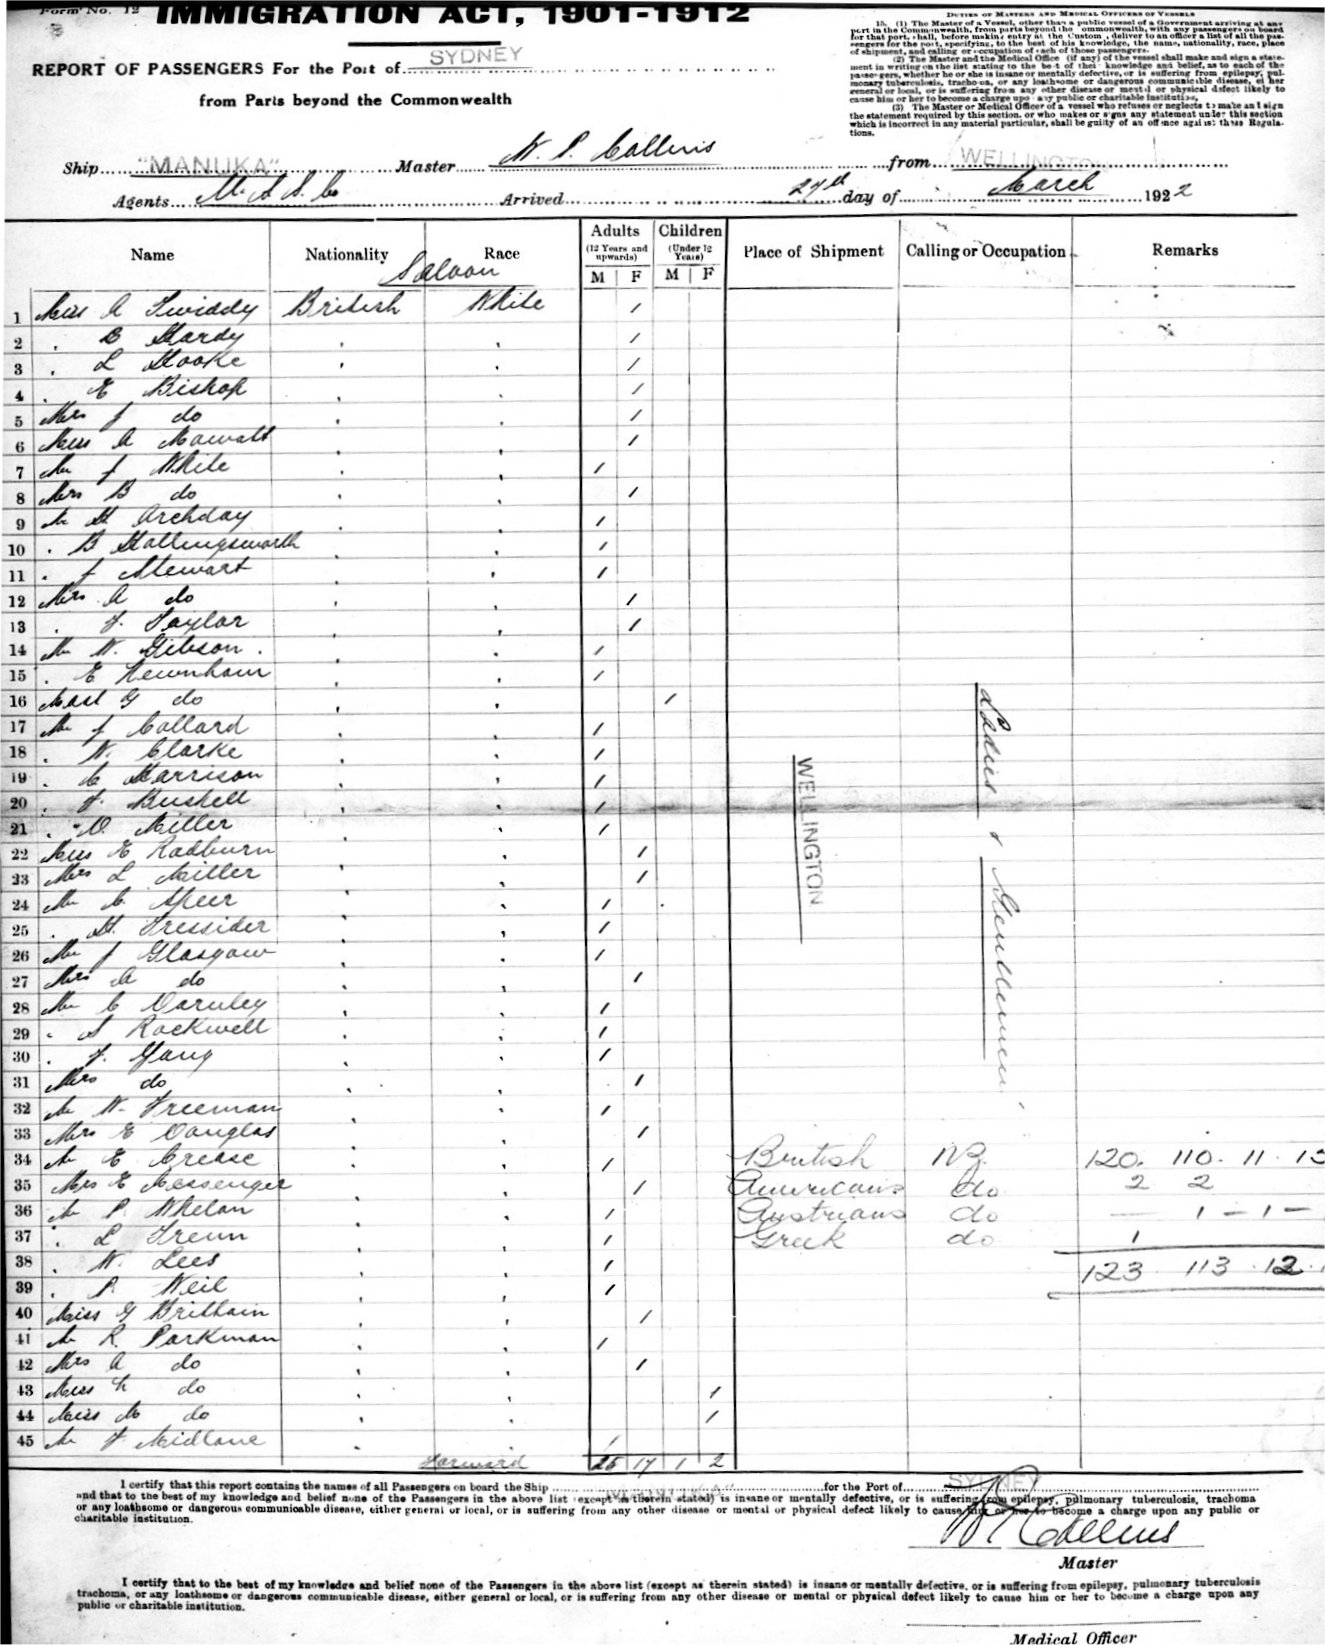 Form No. 12
IMMIGRATION ACT, 1901-1912
REPORT OF PASSENGERS For the Port of SYDNEY
from Parts beyond the Commonwealth
DUTIES OF MASTERS AND MEDICAL OFFICERS OF VESSELS
15. (1) The Master of a Vessel, other than a public vessel of a Government arriving at any
port in the Commonwealth, from parts beyond the Commonwealth, with any passengers on board
for that port, shall, before making entry at the Custom, deliver to an officer a list of all the pas-
sengers for the port, specifying, to the best of his knowledge, the name, nationality, race, place
of shipment, and calling or occupation of each of those passengers.
(2) The Master and the Medical Office (if any) of the vessel shall make and sign a state-
ment in writing on the list stating to the best of their knowledge and belief, as to each of the
passengers, whether he or she is insane or mentally defective, or is suffering from epilepsy, pul-
monary tuberculosis, trachoma, or any loathsome or dangerous communicable disease, either
general or local, or is suffering from any other disease or mental or physical defect likely to
cause him or her to become a charge upon any public or charitable institution.
(3) The Master or Medical Officer of a vessel who refuses or neglects to make and sign
the statement required by this section, or who makes or signs any statement under this section
which is incorrect in any material particular, shall be guilty of an offence against these Regula-
tions.
Ship "MANUKA" Master W. P. Collins from WELLINGTON
Agents Arrived 27th day of March 1922
Name Nationality Race Adults (12 Years and upwards) M F Children (Under 12 Years) M F Place of Shipment Calling or Occupation Remarks
Saloon
1 Miss A Twiddy British White 1
2 . B Hardy 1
3 . L Hooke 1
4 . E Bishop 1
5 Mrs J do 1
6 Miss A Mowatt 1
7 Mr J White 1
8 Mrs B do 1
9 Mr H Archday 1
10 . B Hollingsworth 1
11 . J Stewart 1
12 Mrs A do 1
13 . F. Taylor 1
14 Mr W. Gibson 1
15 . E Newnham 1
16 Mast G do 1
17 Mr J Collard 1
18 . W. Clarke 1
19 . C Harrison 1
20 . F. Bushell 1
21 . D. Miller 1
22 Miss E Radburn 1
23 Mrs L Miller 1
24 Mr C. Speer 1
25 . H. Tressider 1
26 Mr J Glasgow 1
27 Mrs A do 1
28 Mr C Darnley 1
29 . S Rockwell 1
30 . F. Yang 1
31 Mrs do 1
32 Mr W. Freeman 1
33 Mrs E Douglas 1
34 Mr E Crease 1
35 Mrs E Messenger 1
36 Mr P Whelan 1
37 . L Trenn 1
38 . W. Lees 1
39 . P Weil 1
40 Miss G Brittain 1
41 Mr R. Parkman 1
42 Mrs A do 1
43 Miss do 1
44 Miss M do 1
45 Mr F Midlane 1
Forward 25 17 1 2
WELLINGTON
Ladies & Gentlemen
British NZ. 120. 110. 11. 13
Americans do 2 2
Austrians do — 1 - 1 -
Greek do 1
123 113 . 12 .
I certify that this report contains the names of all Passengers on board the Ship "MANUKA" for the Port of SYDNEY
and that to the best of my knowledge and belief none of the Passengers in the above list (except as therein stated) is insane or mentally defective, or is suffering from epilepsy, pulmonary tuberculosis, trachoma
or any loathsome or dangerous communicable disease, either general or local, or is suffering from any other disease or mental or physical defect likely to cause him or her to become a charge upon any public or
charitable institution.
W P Collins
Master
I certify that to the best of my knowledge and belief none of the Passengers in the above list (except as therein stated) is insane or mentally defective, or is suffering from epilepsy, pulmonary tuberculosis
trachoma, or any loathsome or dangerous communicable disease, either general or local, or is suffering from any other disease or mental or physical defect likely to cause him or her to become a charge upon any
public or charitable institution.
Medical Officer